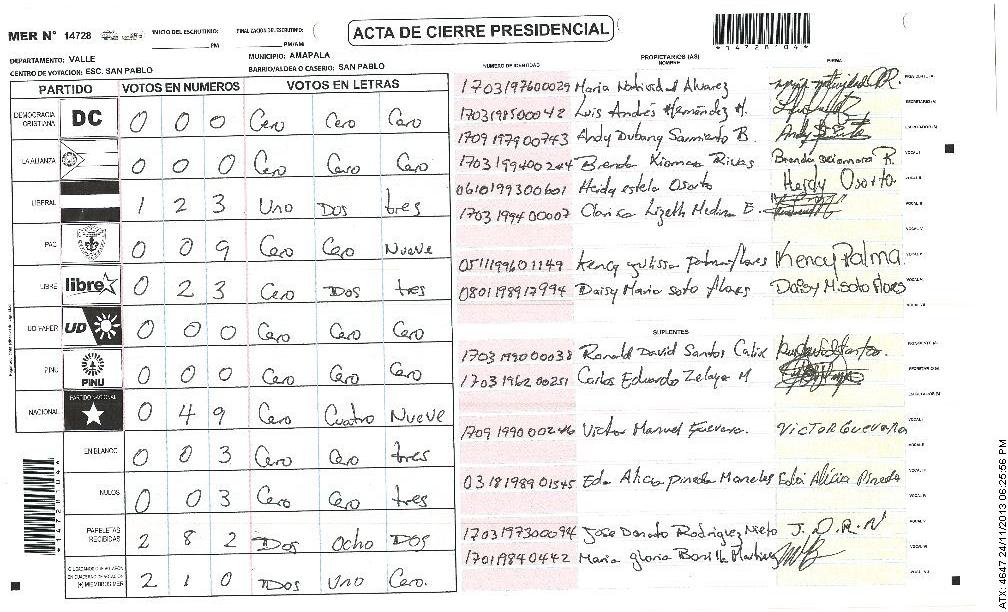 MER N° 14728
INICIO DEL ESCRUTINIO:
PM
FINALIZACION DEL ESCRUTINIO:
PM/AM
ACTA DE CIERRE PRESIDENCIAL
*1472804*
DEPARTAMENTO: VALLE
MUNICIPIO: AMAPALA
CENTRO DE VOTACION: ESC. SAN PABLO
BARRIO/ALDEA O CASERIO: SAN PABLO
PARTIDO VOTOS EN NUMEROS VOTOS EN LETRAS
DEMOCRACIA CRISTIANA DC 0 0 0 Cero Cero Cero
LA ALIANZA 0 0 0 Cero Cero Cero
LIBERAL 1 2 3 Uno Dos tres
PAC 0 0 9 Cero Cero Nueve
LIBRE libre 0 2 3 Cero Dos tres
UD FAPER UD 0 0 0 Cero Cero Cero
PINU PINU 0 0 0 Cero Cero Cero
NACIONAL PARTIDO NACIONAL 0 4 9 Cero Cuatro Nueve
EN BLANCO 0 0 3 Cero Cero tres
NULOS 0 0 3 Cero Cero tres
PAPELETAS RECIBIDAS 2 8 2 Dos Ocho Dos
CIUDADANOS QUE VOTARON EN CUADERNO DE VOTACION (+) MIEMBROS MER 2 1 0 Dos Uno Cero.
NUMERO DE IDENTIDAD PROPIETARIOS (AS) NOMBRE FIRMA
1703197600029 Maria Natividad Alvarez
170319850042 Luis Andrés Hernández H.
1709197900743 Andy Dubany Sarmiento B.
1703199400244 Brenda Xiomara Rivas Brenda Xiomara R.
0610199300601 Heidy estela Osorto Heidy Osorto
1703199400007 Clarisa Lizeth Medina E.
0511199601149 Kency yulissa palma flores Kency Palma
0801198917994 Daisy Maria soto flores Daisy M. soto flores
SUPLENTES
1703199000038 Ronald David Santos Calix
1703196200251 Carlos Eduardo Zelaya M
1709199000246 Victor Manuel Guevara. Victor Guevara
0318198901545 Eda Alicia pineda Eda Alicia Pineda
1703197300094 Jose Donato Rodriguez Nieto J.D.R.N
170119840442 Maria gloria Bonilla Martinez
ATX: 4647 24/11/2013 06:25:56 PM